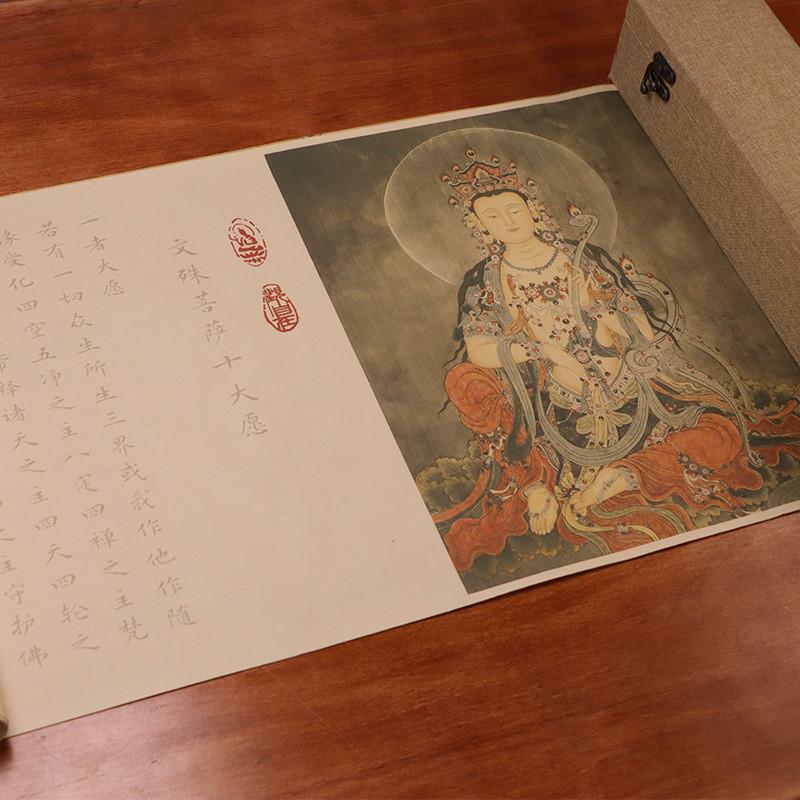 文殊菩萨十大愿
一者大愿
若有一切众生所生三界或我作他作随
缘受化四空五净之主八定四禅之主梵
释诸天之主四天四轮之
主守护佛